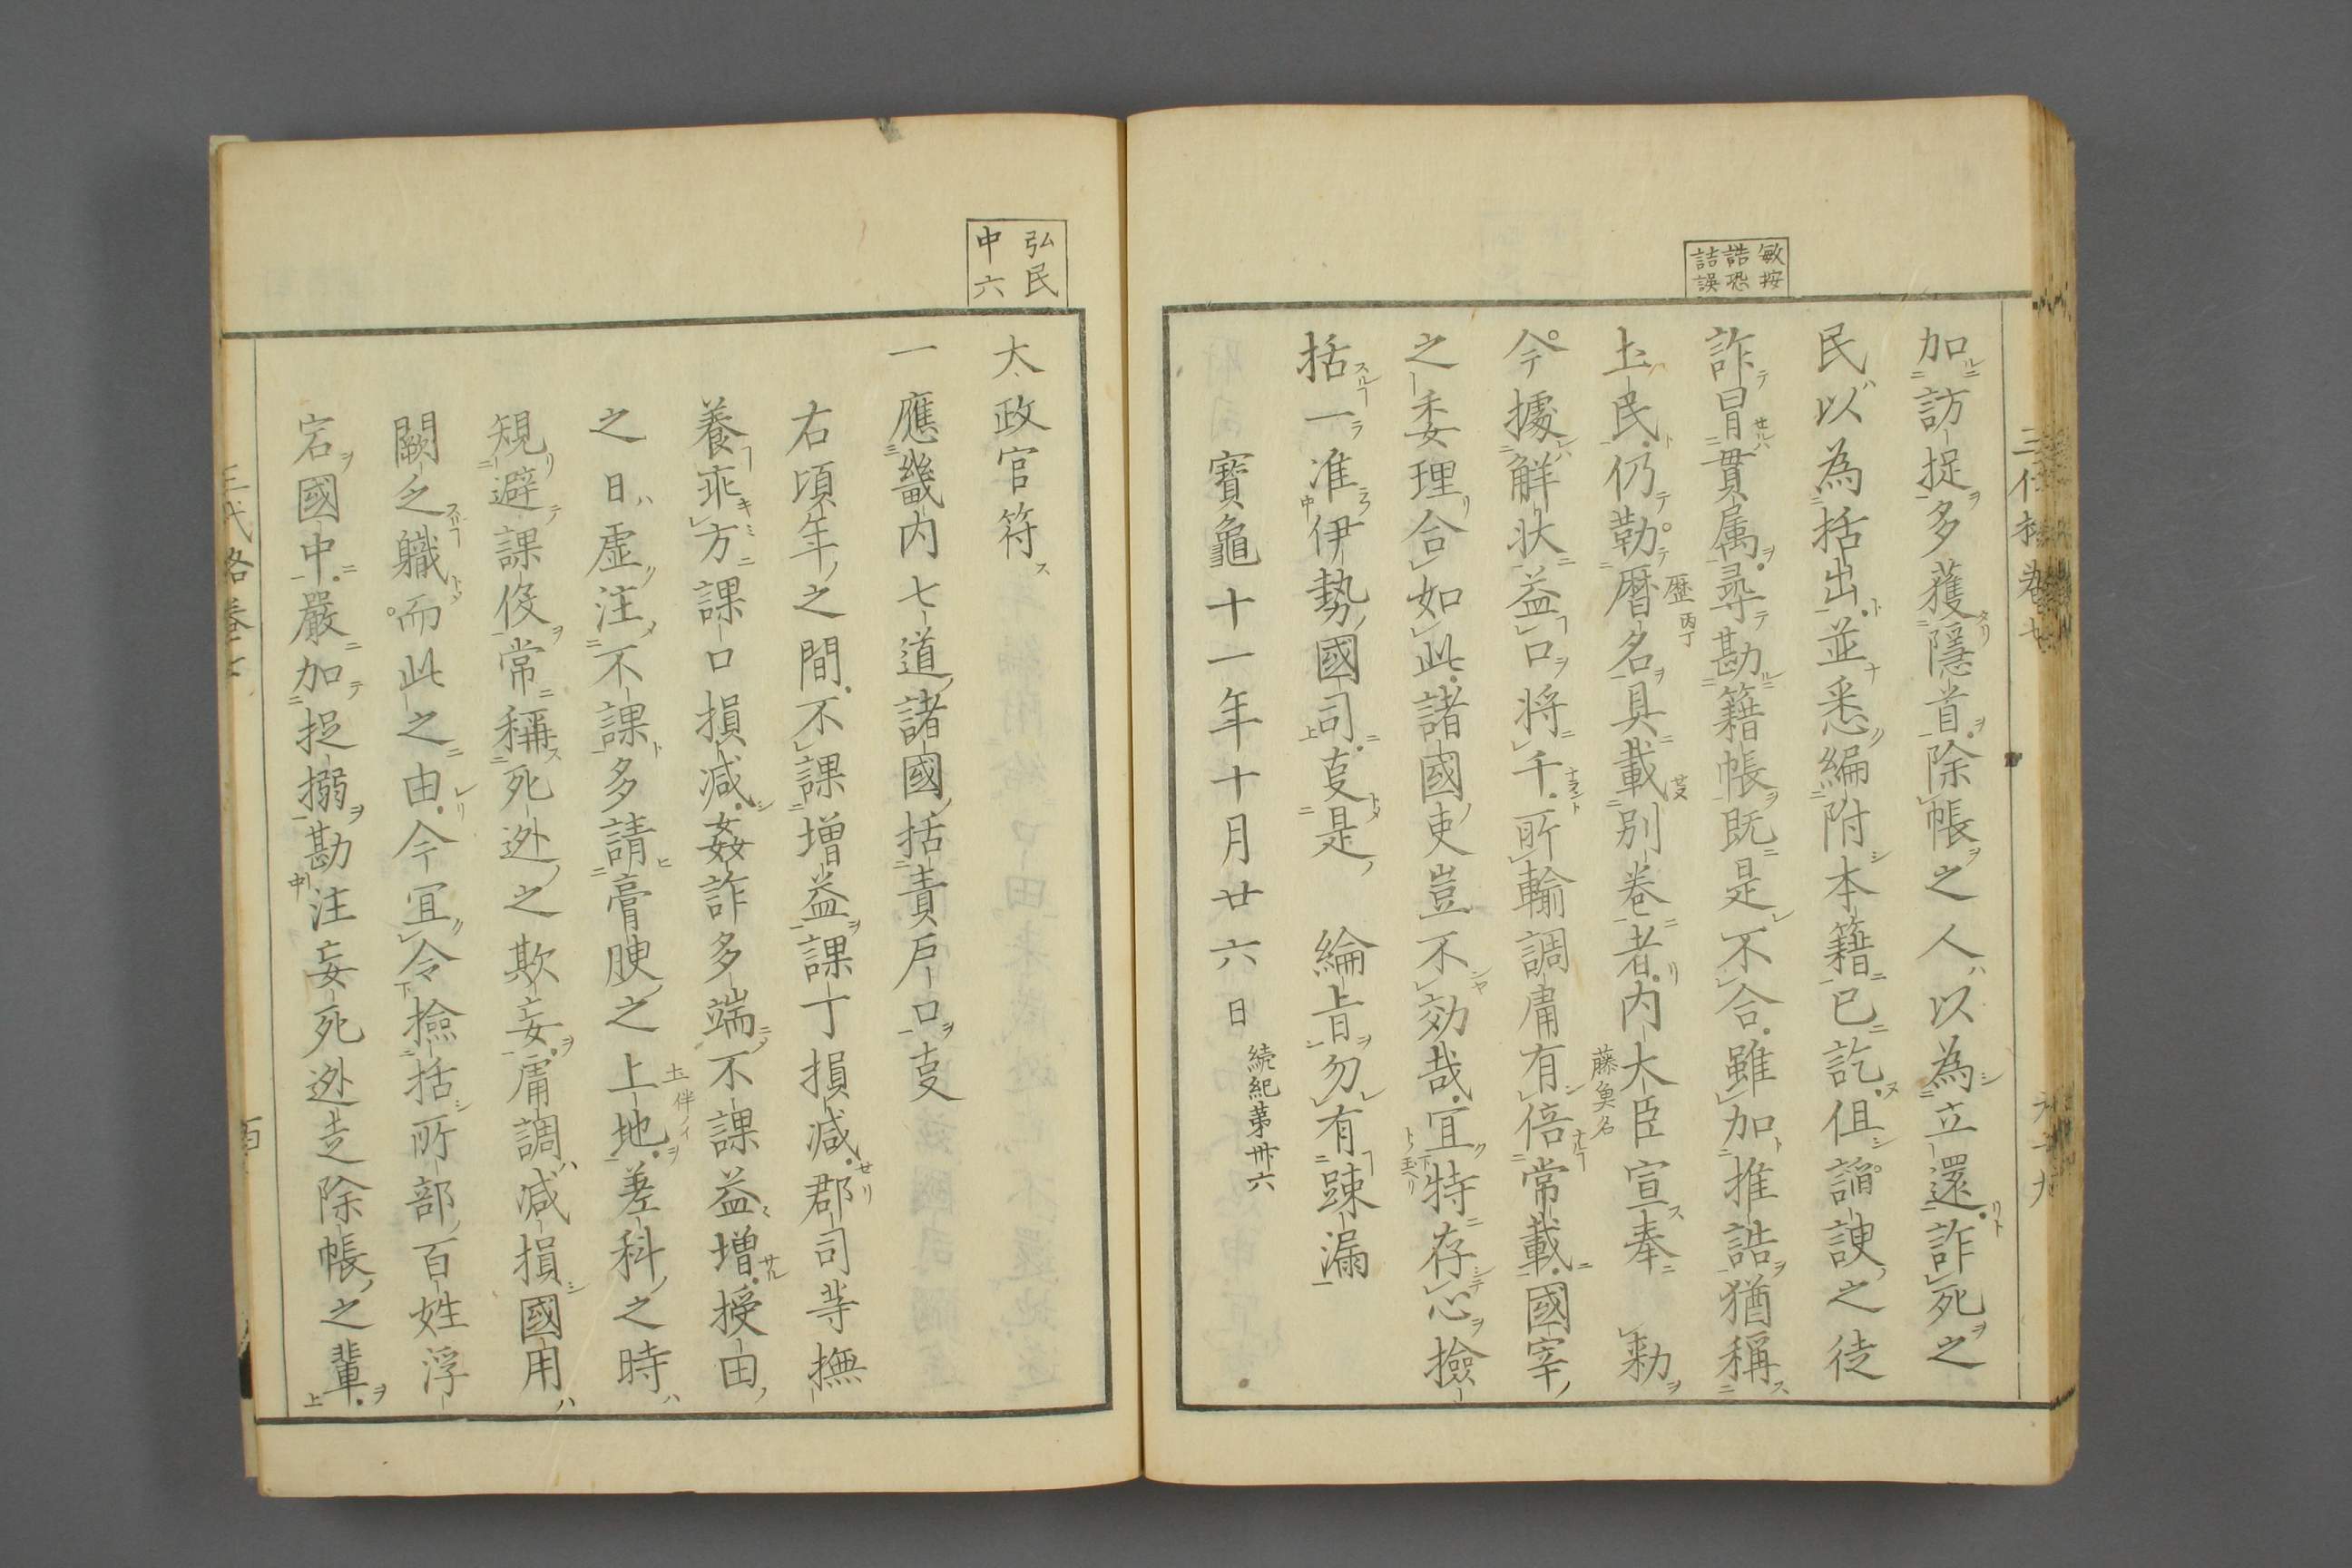 敏按
誥恐
詰誤
加訪捉多獲隱首除帳之人以為立還詐死之
民以為括出並悉編附本籍已訖但謟諛之徒
詐冒貫属尋勘籍帳既是不合雖加推誥猶稱
土民仍勒曆名具載別卷者内大臣宣奉 勅
歴丙丁
藤魚名
今據解状益口将千所輸調庸有倍常載國宰
之委理合如此諸國吏豈不効哉冝特存心撿
括一准伊勢國司叓是 綸旨勿有踈漏
寳龜十一年十月廿六日
続紀第卅六
弘民
中六
太政官符
一應畿内七道諸國括責戶口叓
右頃年之間不課增益課丁損减郡司等撫
養乖方課口損减姦詐多端不課益增授田
之日虚注不課多請膏腴之上地差科之時
土伴ノイ
規避課伇常稱死迯之欺妄庸調减損國用
闕乏職而此之由今冝令撿括所部百姓浮
宕國中嚴加捉搦勘注妄死迯走除帳之輩